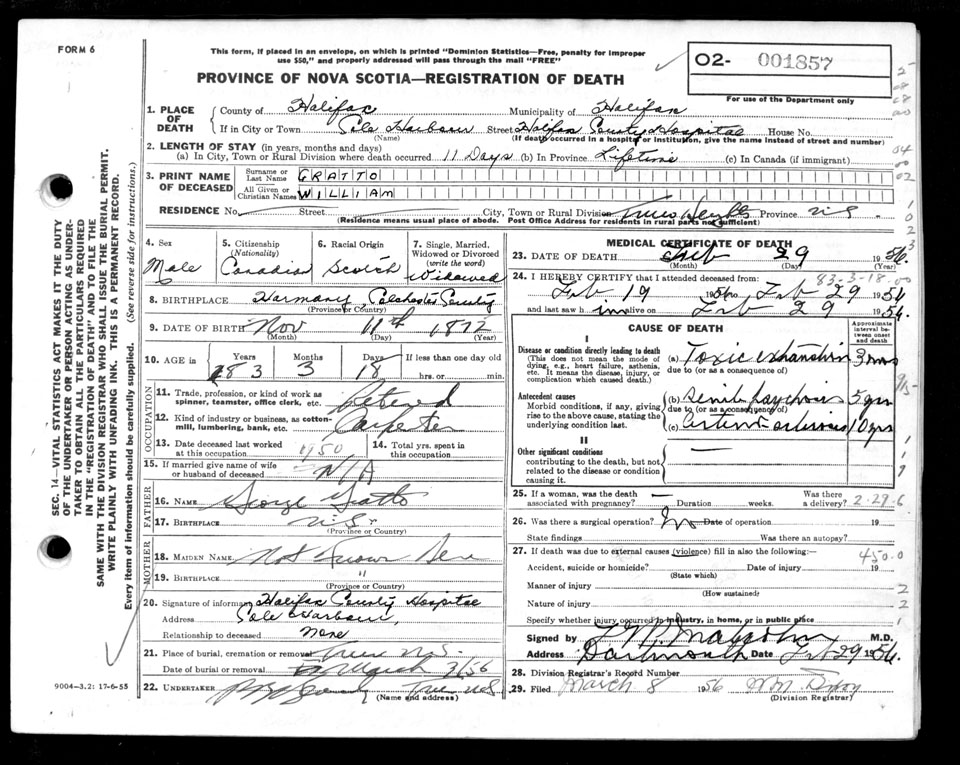 FORM 6
This form, if placed in an envelope, on which is printed "Dominion Statistics—Free, penalty for improper
use $50," and properly addressed will pass through the mail "FREE"
PROVINCE OF NOVA SCOTIA—REGISTRATION OF DEATH
02- 001857
For use of the Department only
1. PLACE OF DEATH
County of Halifax Municipality of Halifax
If in City or Town Cole Harbour Street Halifax County Hospital House No.
(Name) (If death occurred in a hospital or institution, give the name instead of street and number)
2. LENGTH OF STAY (in years, months and days)
(a) In City, Town or Rural Division where death occurred 11 Days (b) In Province Lifetime (c) In Canada (if immigrant)
3. PRINT NAME OF DECEASED
Surname or Last Name GRATTO
All Given or Christian Names WILLIAM
RESIDENCE No. Street City, Town or Rural Division Truro Heights Province N.S.
(Residence means usual place of abode. Post Office Address for residents in rural parts not sufficient)
4. Sex Male
5. Citizenship (Nationality) Canadian
6. Racial Origin Scotch
7. Single, Married, Widowed or Divorced (write the word) Widowed
8. BIRTHPLACE Harmony, Colchester County
(Province or Country)
9. DATE OF BIRTH Nov 11th 1872
(Month) (Day) (Year)
10. AGE in Years Months Days If less than one day old
83 3 18 hrs. or min.
OCCUPATION
11. Trade, profession, or kind of work as spinner, teamster, office clerk, etc. Retired
12. Kind of industry or business, as cotton-mill, lumbering, bank, etc. Carpenter
13. Date deceased last worked at this occupation 1950
14. Total yrs. spent in this occupation
15. If married give name of wife or husband of deceased N/A
FATHER
16. Name George Gratto
17. Birthplace N.S.
(Province or Country)
MOTHER
18. Maiden Name Not Known
19. Birthplace "
(Province or Country)
20. Signature of informant Halifax County Hospital
Address Cole Harbour,
Relationship to deceased None
21. Place of burial, cremation or removal Truro N.S.
Date of burial or removal March 3/56
22. Undertaker Truro N.S.
(Name and address)
9004—3.2: 17-6-55
SEC. 14—VITAL STATISTICS ACT MAKES IT THE DUTY
OF THE UNDERTAKER OR PERSON ACTING AS UNDER-
TAKER TO OBTAIN ALL THE PARTICULARS REQUIRED
IN THE "REGISTRATION OF DEATH" AND TO FILE THE
SAME WITH THE DIVISION REGISTRAR WHO SHALL ISSUE THE BURIAL PERMIT.
WRITE PLAINLY WITH UNFADING INK. THIS IS A PERMANENT RECORD.
Every item of information should be carefully supplied. (See reverse side for instructions.)
MEDICAL CERTIFICATE OF DEATH
23. DATE OF DEATH Feb 29 1956
(Month) (Day) (Year)
83-3-18-00
24. I HEREBY CERTIFY that I attended deceased from:
Feb 19 1956 to Feb 29 1956
and last saw h im alive on Feb 29 1956.
CAUSE OF DEATH
Approximate interval between onset and death
I
Disease or condition directly leading to death
(This does not mean the mode of dying, e.g., heart failure, asthenia, etc. It means the disease, injury, or complication which caused death.)
(a) Toxic exhaustion 3 mos
due to (or as a consequence of)
Antecedent causes
Morbid conditions, if any, giving rise to the above cause, stating the underlying condition last.
(b) Senile psychosis 5 yrs
due to (or as a consequence of)
(c) Arteriosclerosis 10 yrs
II
Other significant conditions
contributing to the death, but not related to the disease or condition causing it.
25. If a woman, was the death associated with pregnancy? Duration weeks. Was there a delivery?
2-29-6
26. Was there a surgical operation? No Date of operation 19
State findings Was there an autopsy?
27. If death was due to external causes (violence) fill in also the following:
450.0
Accident, suicide or homicide? Date of injury 19
(State which)
Manner of injury
(How sustained)
Nature of injury
Specify whether injury occurred in industry, in home, or in public place
Signed by M.D.
Address Dartmouth Date Feb 29 1956.
28. Division Registrar's Record Number
29. Filed March 8 1956
(Division Registrar)